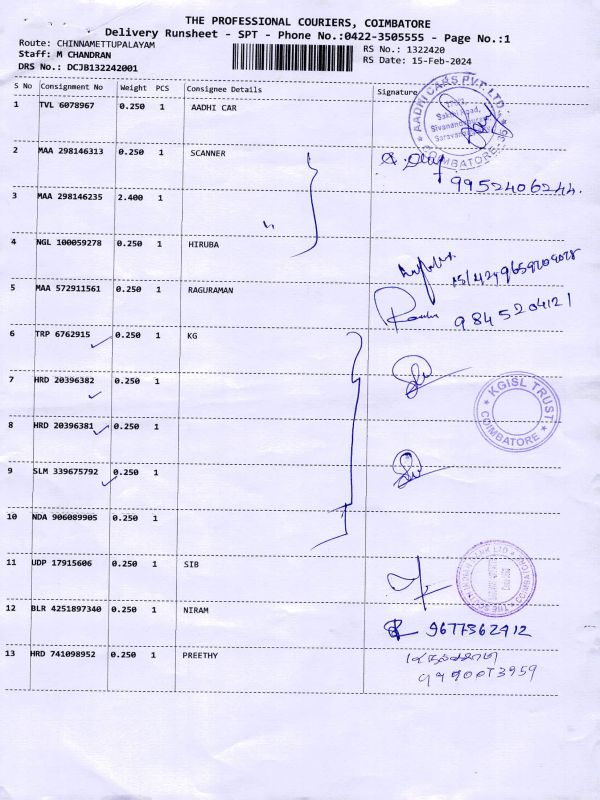 THE PROFESSIONAL COURIERS, COIMBATORE
Delivery Runsheet - SPT - Phone No.:0422-3505555 - Page No.:1
Route: CHINNAMETTUPALAYAM RS No.: 1322420
Staff: M CHANDRAN RS Date: 15-Feb-2024
DRS No.: DCJB132242001
S No Consignment No Weight PCS Consignee Details Signature
1 TVL 6078967 0.250 1 AADHI CAR
AADHI CABS PVT. LTD. COIMBATORE
2 MAA 298146313 0.250 1 SCANNER
9952406244.
3 MAA 298146235 2.400 1
4 NGL 100059278 0.250 1 HIRUBA
5 MAA 572911561 0.250 1 RAGURAMAN
9845204121
6 TRP 6762915 0.250 1 KG
7 HRD 20396382 0.250 1
KGISL TRUST COIMBATORE
8 HRD 20396381 0.250 1
9 SLM 339675792 0.250 1
10 NDA 906089905 0.250 1
11 UDP 17915606 0.250 1 SIB
12 BLR 4251897340 0.250 1 NIRAM
9677362912
13 HRD 741098952 0.250 1 PREETHY